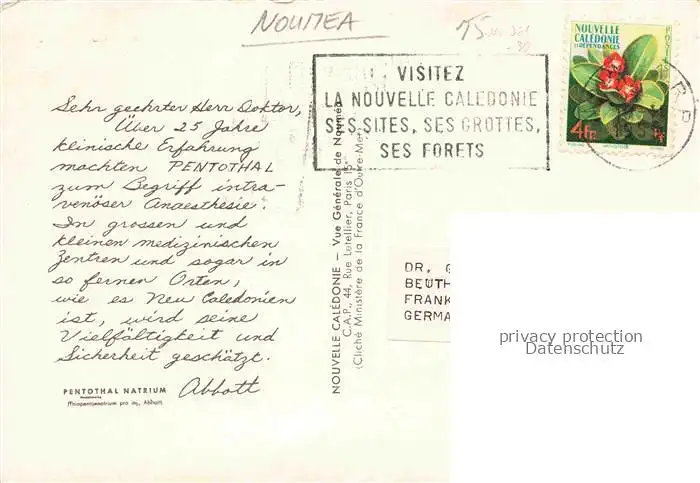 NOUMEA
75
VISITEZ
LA NOUVELLE CALEDONIE
SES SITES, SES GROTTES,
SES FORETS
NOUVELLE
CALÉDONIE
ET DÉPENDANCES
POSTES
4Fr
Sehr geehrter Herr Doktor,
Über 25 Jahre
klinische Erfahrung
machten PENTOTHAL
zum Begriff intra-
venöser Anaesthesie.
In grossen und
kleinen medizinischen
Zentren und sogar in
so fernen Orten,
wie es Neu Caledonien
ist, wird seine
Vielfältigkeit und
Sicherheit geschätzt.
Abbott
PENTOTHAL NATRIUM
Thiopentonatrium pro inj., Abbott
NOUVELLE CALÉDONIE — Vue Générale de Nouméa
C.A.P., 44, Rue Letellier, Paris 15e
(Cliché Ministère de la France d'Outre-Mer)
DR. G
BEUTH
FRANK
GERMA
privacy protection
Datenschutz